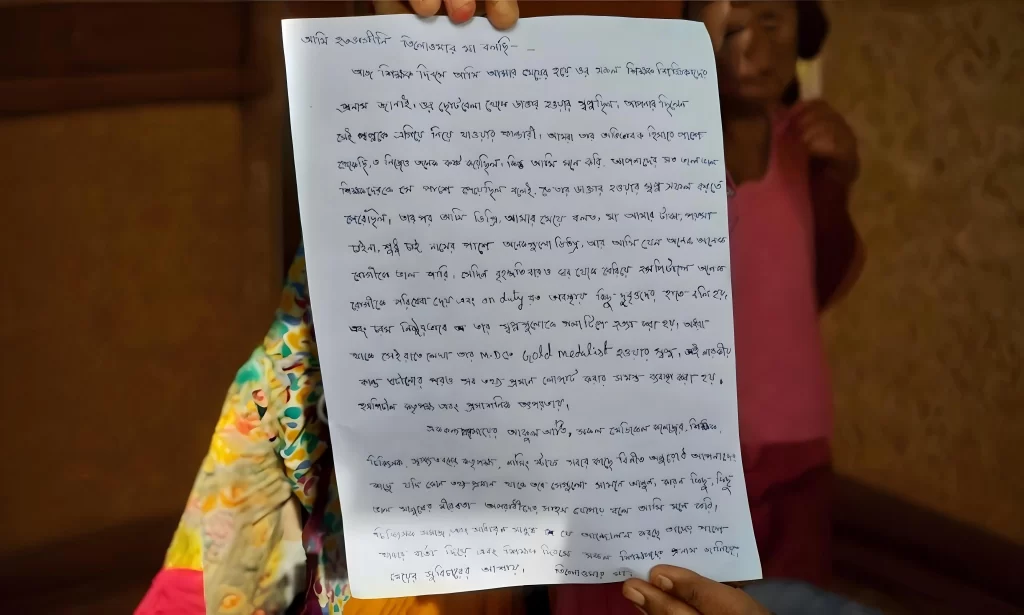 আমি হতভাগীনি তিলোত্তমার মা বলছি- -
আজ শিক্ষক দিবসে আমি আমার মেয়ের হয়ে ওর সকল শিক্ষক শিক্ষিকাদের
প্রনাম জানাই। ওর ছোটবেলা থেকে ডাক্তার হওয়ার স্বপ্ন ছিল, আপনারা ছিলেন
সেই স্বপ্নকে এগিয়ে নিয়ে যাওয়ার কান্ডারী। আমরা তার অভিভাবক হিসাবে পাশে
থেকেছি, ও নিজেও অনেক কষ্ট করেছিল, কিন্তু আমি মনে করি, আপনাদের মত ভালো ভালো
শিক্ষকদেরকে সে পাশে পেয়েছিল বলেই, ও তার ডাক্তার হওয়ার স্বপ্ন সফল করতে
পেরেছিল, আমার মেয়ে বলত, মা আমার টাকা, পয়সা
চাইনা, শুধু চাই নামের পাশে অনেকগুলো ডিগ্রি, আর আমি যেন অনেক অনেক
রোগীকে ভাল পারি, সেদিন বৃহস্পতিবারও ঘর থেকে বেরিয়ে হসপিটালে অনেক
রোগীকে পরিষেবা দেয় এবং on duty রত অবস্থায় কিছু দুবৃত্তদের হাতে বলি হয়,
এবং চরম নিষ্ঠুরভাবে তার স্বপ্নগুলোকে গলা টিপে হত্যা করা হয়,
থাকে সেই রাতে লেখা তার M.D তে Gold medalist হওয়ার স্বপ্ন, এই নারকীয়
কান্ড ঘটানোর পরও সব তথ্য প্রমান লোপাট করার সমস্ত ব্যবস্থা করা হয়,
হসপিটাল কতৃপক্ষ এবং প্রশাসনিক তৎপরতায়,
মায়ের আকুল আর্তি, সকল মেডিকেল কলেজের, শিক্ষক,
চিকিৎসক, স্বাস্থ্যভবনের কতৃপক্ষ, নার্সিং স্টাফ সবার কাছে বিনীত অনুরোধ আপনাদের
কাছে যদি কোন তথ্য প্রমান থাকে তবে সেগুলো সামনে আনুন, কারন কিছু, কিছু
ভাল মানুষের নীরবতা অপরাধীদের সাহস যোগায় বলে আমি মনে করি,
চিকিৎসক সমাজ, এবং সাধারন মানুষ যে আন্দোলন করছে তাদের পাশে
থাকার বার্তা দিয়ে এবং শিক্ষক দিবসে সকল শিক্ষকদের প্রনাম জানিয়ে,
মেয়ের সুবিচারের আশায়, তিলোত্তমার মা,